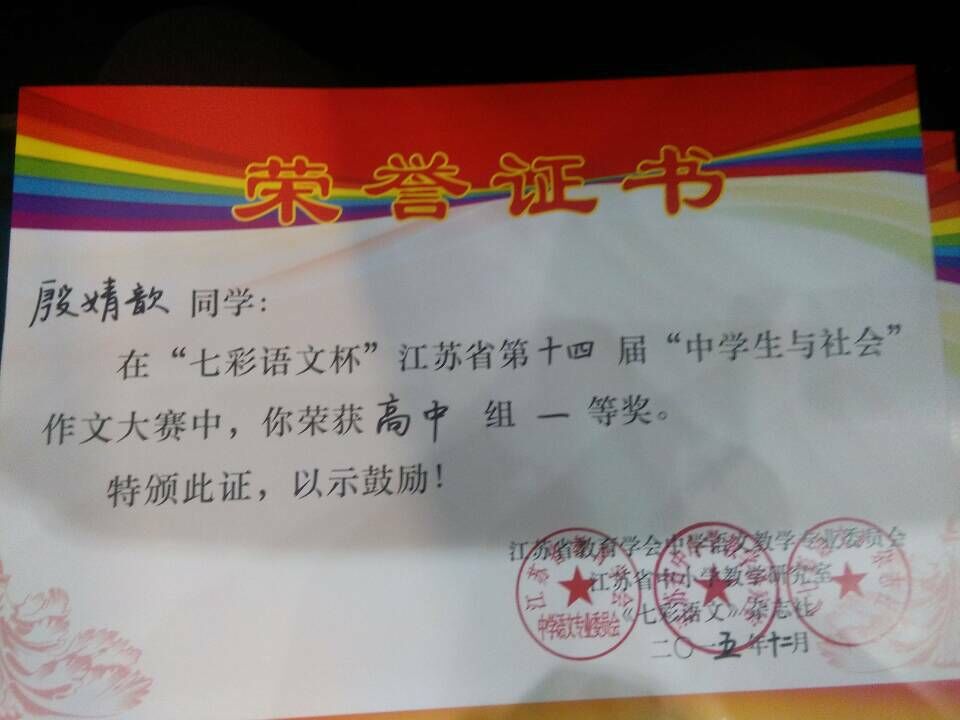 荣誉证书
殷婧歆 同学：
在“七彩语文杯”江苏省第十四届“中学生与社会”
作文大赛中，你荣获高中 组 一 等奖。
特颁此证，以示鼓励！
江苏省教育学会中学语文教学专业委员会
江苏省中小学教学研究室
《七彩语文》杂志社
二〇一五年十二月
中学语文专业委员会